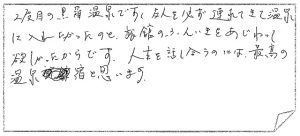 2度目の黒角温泉です。友人を必ず連れてきて温泉
に入れたかったのと、旅館のふんいきをあじわって
欲しかったからです。人生を話し合うのには、最高の
温泉宿と思います。